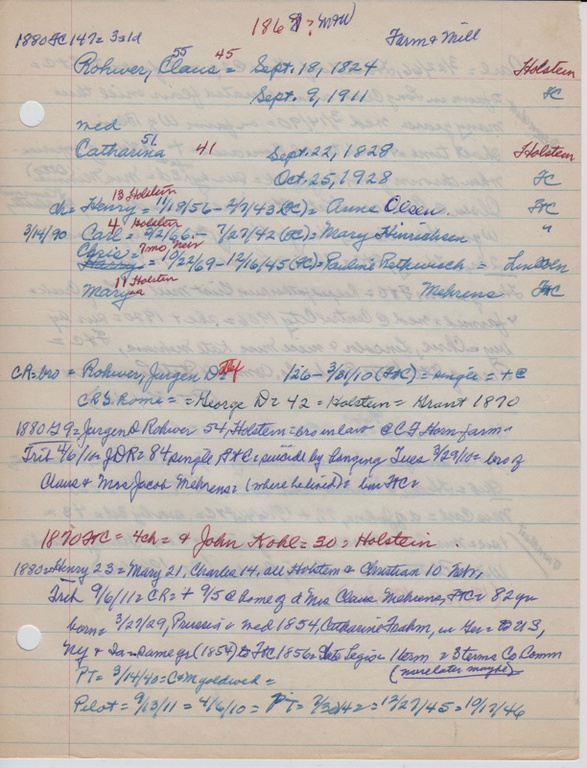 1880 FC 147 = 3 sld
186 ? = M&W
Farm & Mill
Rohwer, Claus = Sept. 18, 1824 Holstein
55 45
Sept. 9, 1911 FC
med
Catharina 41 Sept. 22, 1828 Holstein
51
Oct. 25, 1928 FC
13 Holstein
ch = Henry = 11/19/56 - 2/7/43 (FC) = Anna Olsen FC
4 Holstein
3/14/90 Carl = 9/2/66 - 7/27/42 (FC) = Mary Hinrichsen "
Chris = 7 mo Nebr
Harry = 10/22/69 - 12/16/45 (FC) = Pauline Rethwisch = Lincoln
11 Holstein
Mary Mehrens FC
CR = bro = Rohwer, Jurgen D = 1/26 - 3/21/10 (FC) = single = FC
CR & Rome = = George D = 42 = Holstein = Grant 1870
1880 G9 = Jurgen D Rohwer 54, Holstein = bro in law @ CF Horn farm =
Trib 4/6/10 = JDR = 84 single FC = suicide by hanging Tues 3/29/10 = bro of
Claus & Mrs Jacob Mehrens = (where he lived) = bur FC =
1870 FC = 4 ch = & John Kohl = 30 = Holstein.
1880 = Henry 23 = Mary 21, Charles 14, all Holstein & Christian 10 Nebr,
Trib 9/6/11 = CR = + 9/5 @ home of d Mrs Claus Mehrens, FC = 82 yr
born = 3/27/29, Prussia = med 1854, Catharine Frahm, in Ger = to US,
NY & Ia = same yr (1854) to FC 1856 = State Legis = 1 term = 3 terms Co Comm
(more later maybe)
PT = 3/14/40 = C & M goldwed =
Pilot = 9/13/11 = 4/6/10 = PT = 7/30/42 = 12/27/45 = 10/17/46